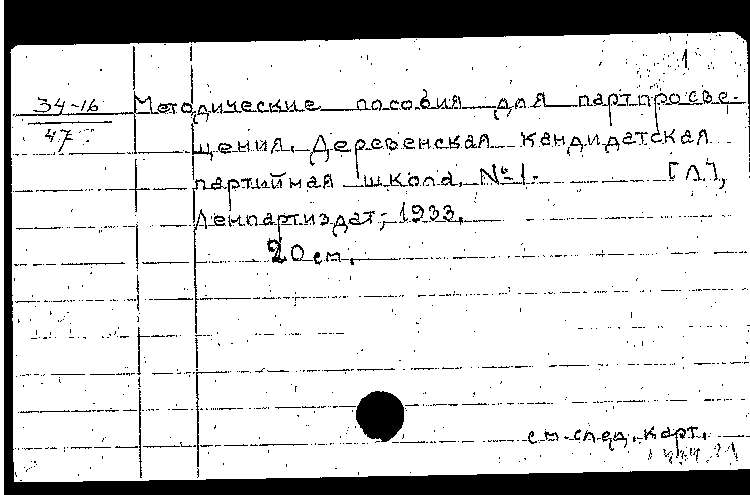 1
34-16 Методические пособия для партпросве-
47 щения. Деревенская кандидатская
партийная школа. №1. [Л],
Ленпартиздат, 1933.
20 см.
см. след. карт.